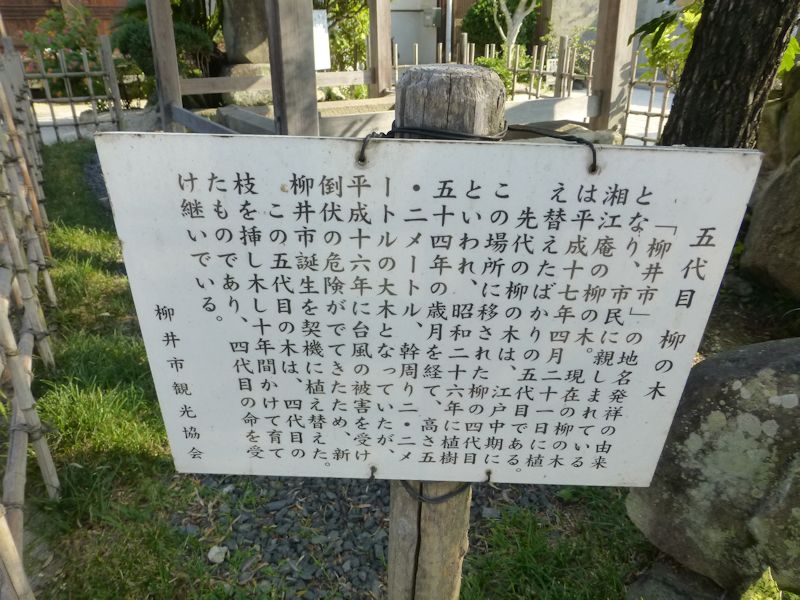 五代目 柳の木
「柳井市」の地名発祥の由来
となり、市民に親しまれている
湘江庵の柳の木。現在の柳木
は平成十七年四月二十一日に植
え替えたばかりの五代目である。
先代の柳の木は、江戸中期に
この場所に移された柳の四代目
といわれ、昭和二十六年に植樹
五十四年の歳月を経て、高さ五
・二メートル、幹周り二・二メ
ートルの大木となっていたが、
平成十六年に台風の被害を受け
倒伏の危険がでてきたため、新
柳井市誕生を契機に植え替えた。
この五代目の木は、四代目の
枝を挿し木し十年間かけて育て
たものであり、四代目の命を受
け継いでいる。
柳井市観光協会